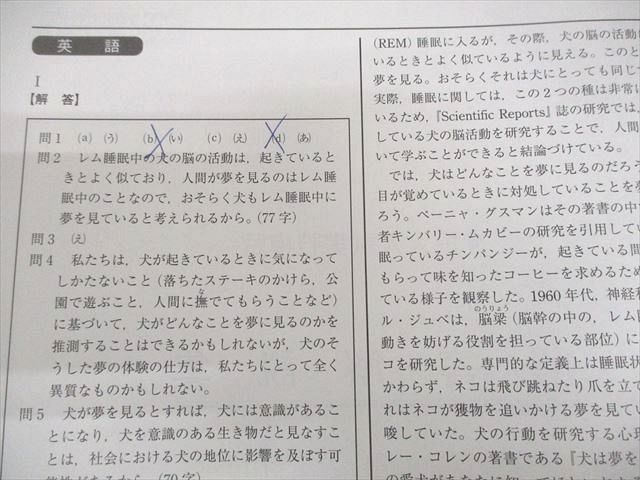 英語
I
【解 答】
問1 (a) (う) (b) (い) (c) (え) (d) (あ)
問2 レム睡眠中の犬の脳の活動は，起きていると
きとよく似ており，人間が夢を見るのはレム睡
眠中のことなので，おそらく犬もレム睡眠中に
夢を見ていると考えられるから。(77字)
問3 (え)
問4 私たちは，犬が起きているときに気になって
しかたないこと（落ちたステーキのかけら，公
園で遊ぶこと，人間に撫でてもらうことなど）
に基づいて，犬がどんなことを夢に見るのかを
推測することはできるかもしれないが，犬のそ
うした夢の体験の仕方は，私たちにとって全く
異質なものかもしれない。
問5 犬が夢を見るとすれば，犬には意識があるこ
とになり，犬を意識のある生き物だと見なすこ
とは，社会における犬の地位に影響を及ぼす可
能性があるから。(70字)
(REM) 睡眠に入るが，その際，犬の脳の活動は
いるときとよく似ているように見える。このと
夢を見る。おそらくそれは犬にとっても同じ
実際，睡眠に関しては，この2つの種は非常に
いるため，『Scientific Reports』誌の研究では，
している犬の脳活動を研究することで，人間
いて学ぶことができると結論づけている。
では，犬はどんなことを夢に見るのだろう
目が覚めているときに対処していることを夢
ろう。ペーニャ・グスマンはその著書の中で
者キンバリー・ムカビーの研究を引用してい
眠っているチンパンジーが，起きている間
もらって味を知ったコーヒーを求めるため
ている様子を観察した。1960年代，神経科
ル・ジュベは，脳梁（脳幹の中の，レム
動きを妨げる役割を担っている部位）に
コを研究した。専門的な定義上は睡眠状
かわらず，ネコは飛び跳ねたり爪を立て
れはネコが獲物を追いかける夢を見てい
唆していた。犬の行動を研究する心理
レー・コレンの著書である『犬は夢を
の愛犬があなたに知って